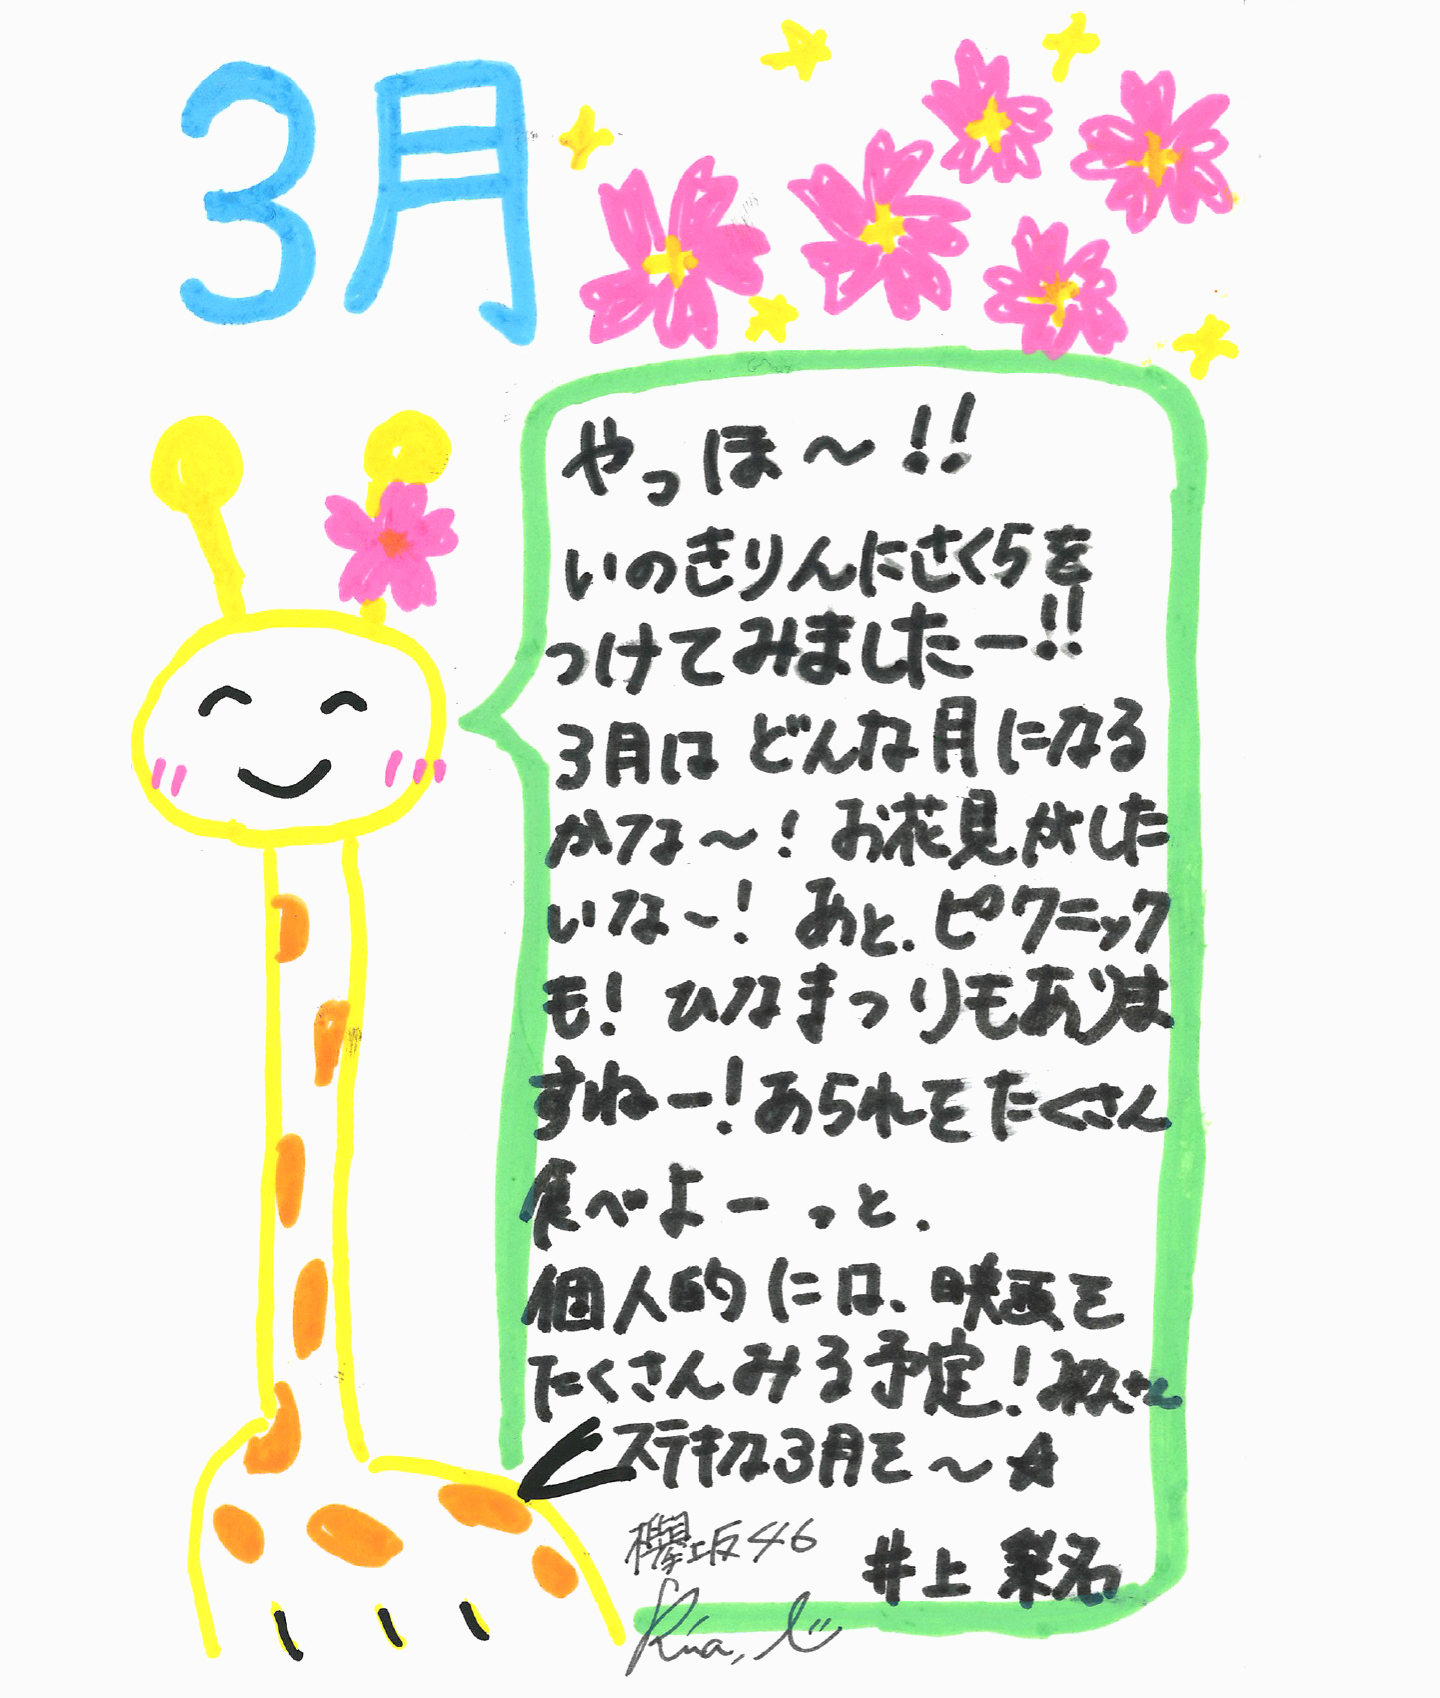 3月
やっほ〜!!
いのきりんにさくらを
つけてみましたー!!
3月は どんな月になる
かな〜! お花見がした
いな〜! あと、ピクニック
も! ひなまつりもありま
すねー! あられをたくさん
食べよーっと、
個人的には、映画を
たくさんみる予定! みなさん
ステキな3月を〜☆
欅坂46
井上 梨名
Rina, I